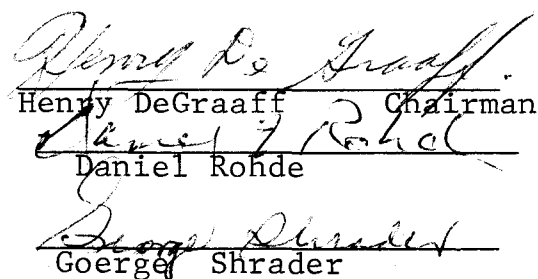 Henry De Graaff
Henry DeGraaff Chairman
Daniel F Rohde
Daniel Rohde
George Shrader
Goerge Shrader